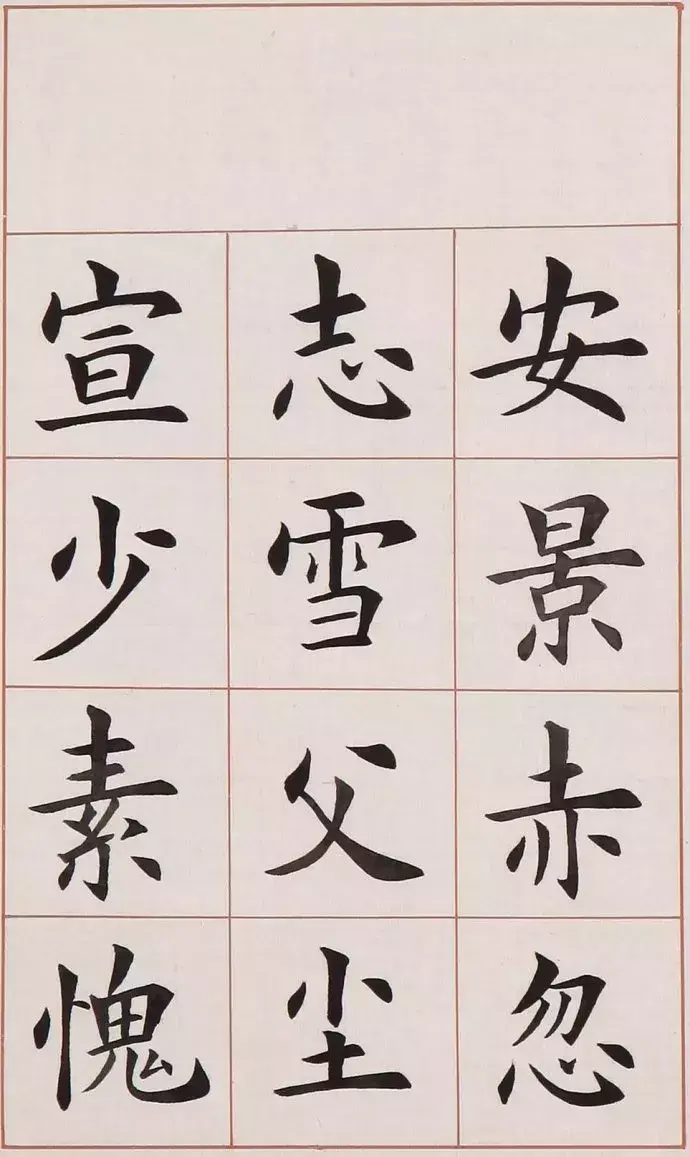 安景赤忽
志雪父尘
宣少素愧